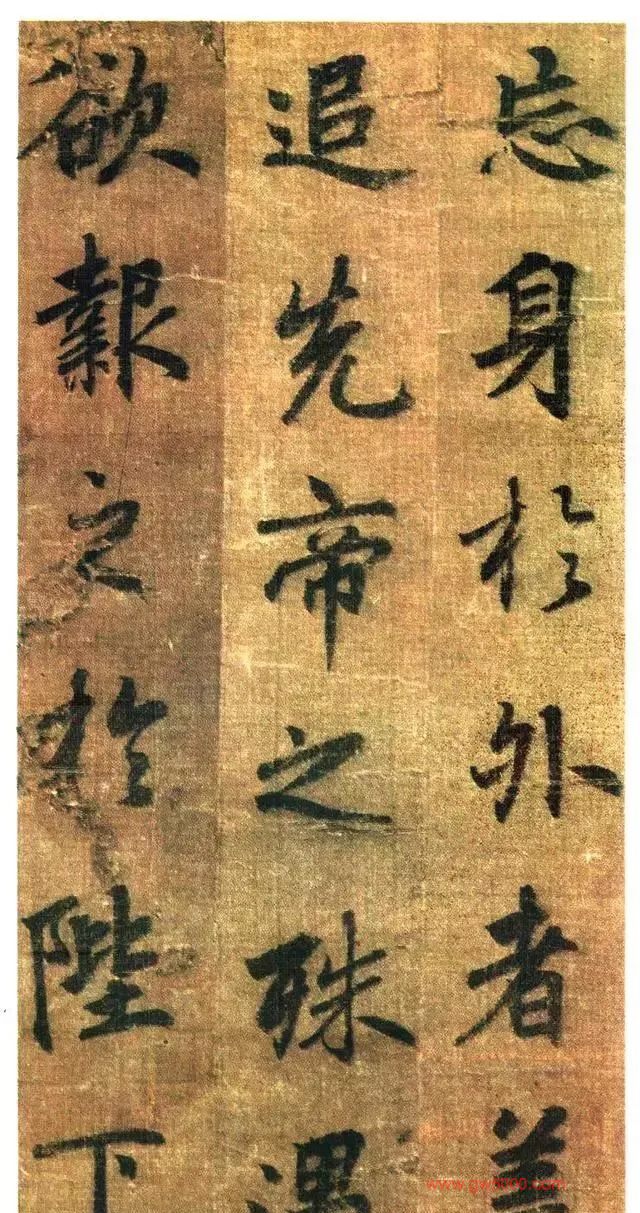 忘身於外者盖
追先帝之殊遇
欲報之於陛下
www.gw5000.com